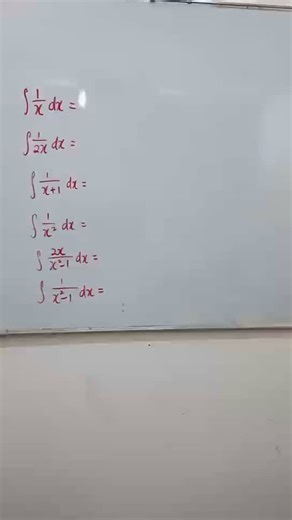 ∫ 1/x dx =
∫ 1/2x dx =
∫ 1/x+1 dx =
∫ 1/x² dx =
∫ 2x/x²-1 dx =
∫ 1/x²-1 dx =